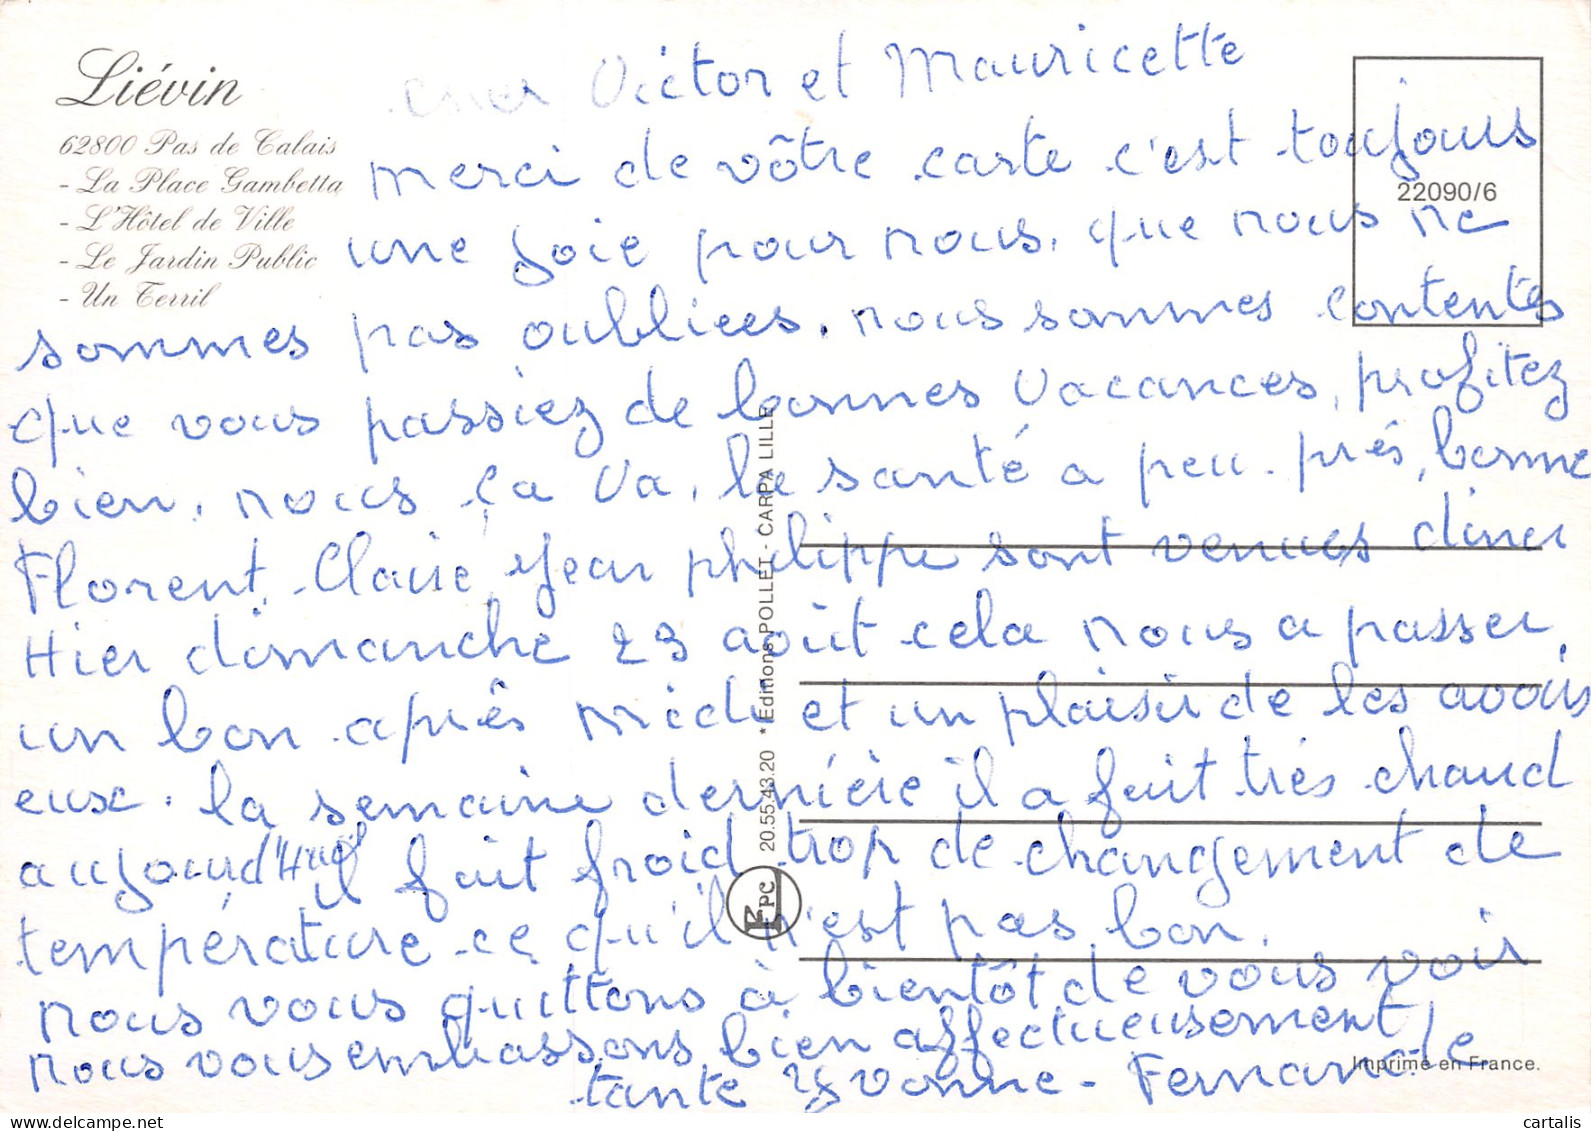 Liévin
62800 Pas de Calais
- La Place Gambetta
- L'Hôtel de Ville
- Le Jardin Public
- Un Terril
22090/6
cher Victor et Mauricette
merci de vôtre carte c'est toujours
une joie pour nous, que nous ne
sommes pas oubliees, nous sommes contentes
que vous passiez de bonnes vacances, profitez
bien, nous ça va, la santé a peu près, bonne
Florent, Claire, Jean philippe sont venues diner
Hier dimanche 23 août cela nous a passer
un bon après midi et un plaisir de les avoir
eux. la semaine dernière il a fait très chaud
aujourd'Hui il fait froid trop de changement de
température ce qu'il n'est pas bon.
nous vous quittons à bientôt de vous voir
nous vous embrassons bien affectueusement
tante Yvonne - Fernande
20.55.43.20 * Editions POLLET - CARPA LILLE
PC
Imprimé en France.
cartalis
www.delcampe.net